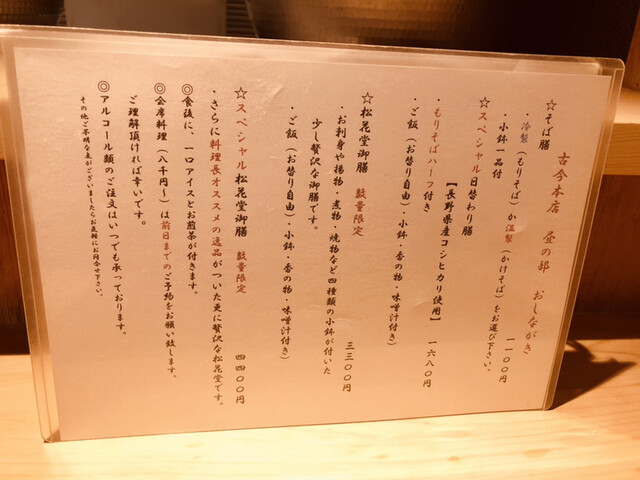 古今本店　昼の部　おしながき
☆そば膳　一一〇〇円
・冷製（もりそば）か温製（かけそば）をお選び下さい。
・小鉢一品付
☆スペシャル日替わり膳　一六八〇円
・もりそばハーフ付き
【長野県産コシヒカリ使用】
・ご飯（お替り自由）・小鉢・香の物・味噌汁付き）
☆松花堂御膳　数量限定　三三〇〇円
・お刺身や揚物・煮物・焼物など四種類の小鉢が付いた
少し贅沢な御膳です。
・ご飯（お替り自由）・小鉢・香の物・味噌汁付き）
☆スペシャル松花堂御膳　数量限定　四四〇〇円
・さらに料理長オススメの逸品がついた更に贅沢な松花堂です。
◎食後に、一口アイスとお煎茶が付きます。
◎会席料理（八千円～）は前日までのご予約をお願い致します。
ご理解頂ければ幸いです。
◎アルコール類のご注文はいつでも承っております。
その他ご不明な点がございましたらお気軽にお問合せ下さい。